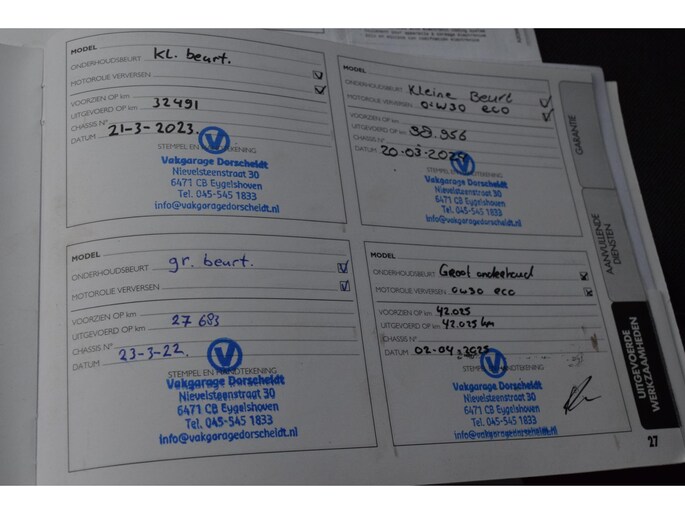 MODEL
kl. beurt.
ONDERHOUDSBEURT
MOTOROLIE VERVERSEN
VOORZIEN OP km
UITGEVOERD OP km 32491
CHASSIS N°
DATUM 21-3-2023.
STEMPEL EN HANDTEKENING
Vakgarage Dorscheidt
Nievelsteenstraat 30
6471 CB Eygelshoven
Tel. 045-545 1833
info@vakgaragedorscheidt.nl
MODEL
ONDERHOUDSBEURT Kleine Beurt
MOTOROLIE VERVERSEN 0W30 eco
VOORZIEN OP km
UITGEVOERD OP km 38.956
CHASSIS N°
DATUM 20-03-2024
STEMPEL EN HANDTEKENING
Vakgarage Dorscheidt
Nievelsteenstraat 30
6471 CB Eygelshoven
Tel. 045-545 1833
info@vakgaragedorscheidt.nl
MODEL
gr. beurt.
ONDERHOUDSBEURT
MOTOROLIE VERVERSEN
VOORZIEN OP km
UITGEVOERD OP km 27683
CHASSIS N°
DATUM 23-3-22.
STEMPEL EN HANDTEKENING
Vakgarage Dorscheidt
Nievelsteenstraat 30
6471 CB Eygelshoven
Tel. 045-545 1833
info@vakgaragedorscheidt.nl
MODEL
ONDERHOUDSBEURT Groot onderhoud
MOTOROLIE VERVERSEN 0w30 eco
VOORZIEN OP km 42.025
UITGEVOERD OP km 42.025 km
CHASSIS N°
DATUM 02-04-2025
STEMPEL EN HANDTEKENING
Vakgarage Dorscheidt
Nievelsteenstraat 30
6471 CB Eygelshoven
Tel. 045-545 1833
info@vakgaragedorscheidt.nl
GARANTIE
AANVULLENDE
DIENSTEN
UITGEVOERDE
WERKZAAMHEDEN
27